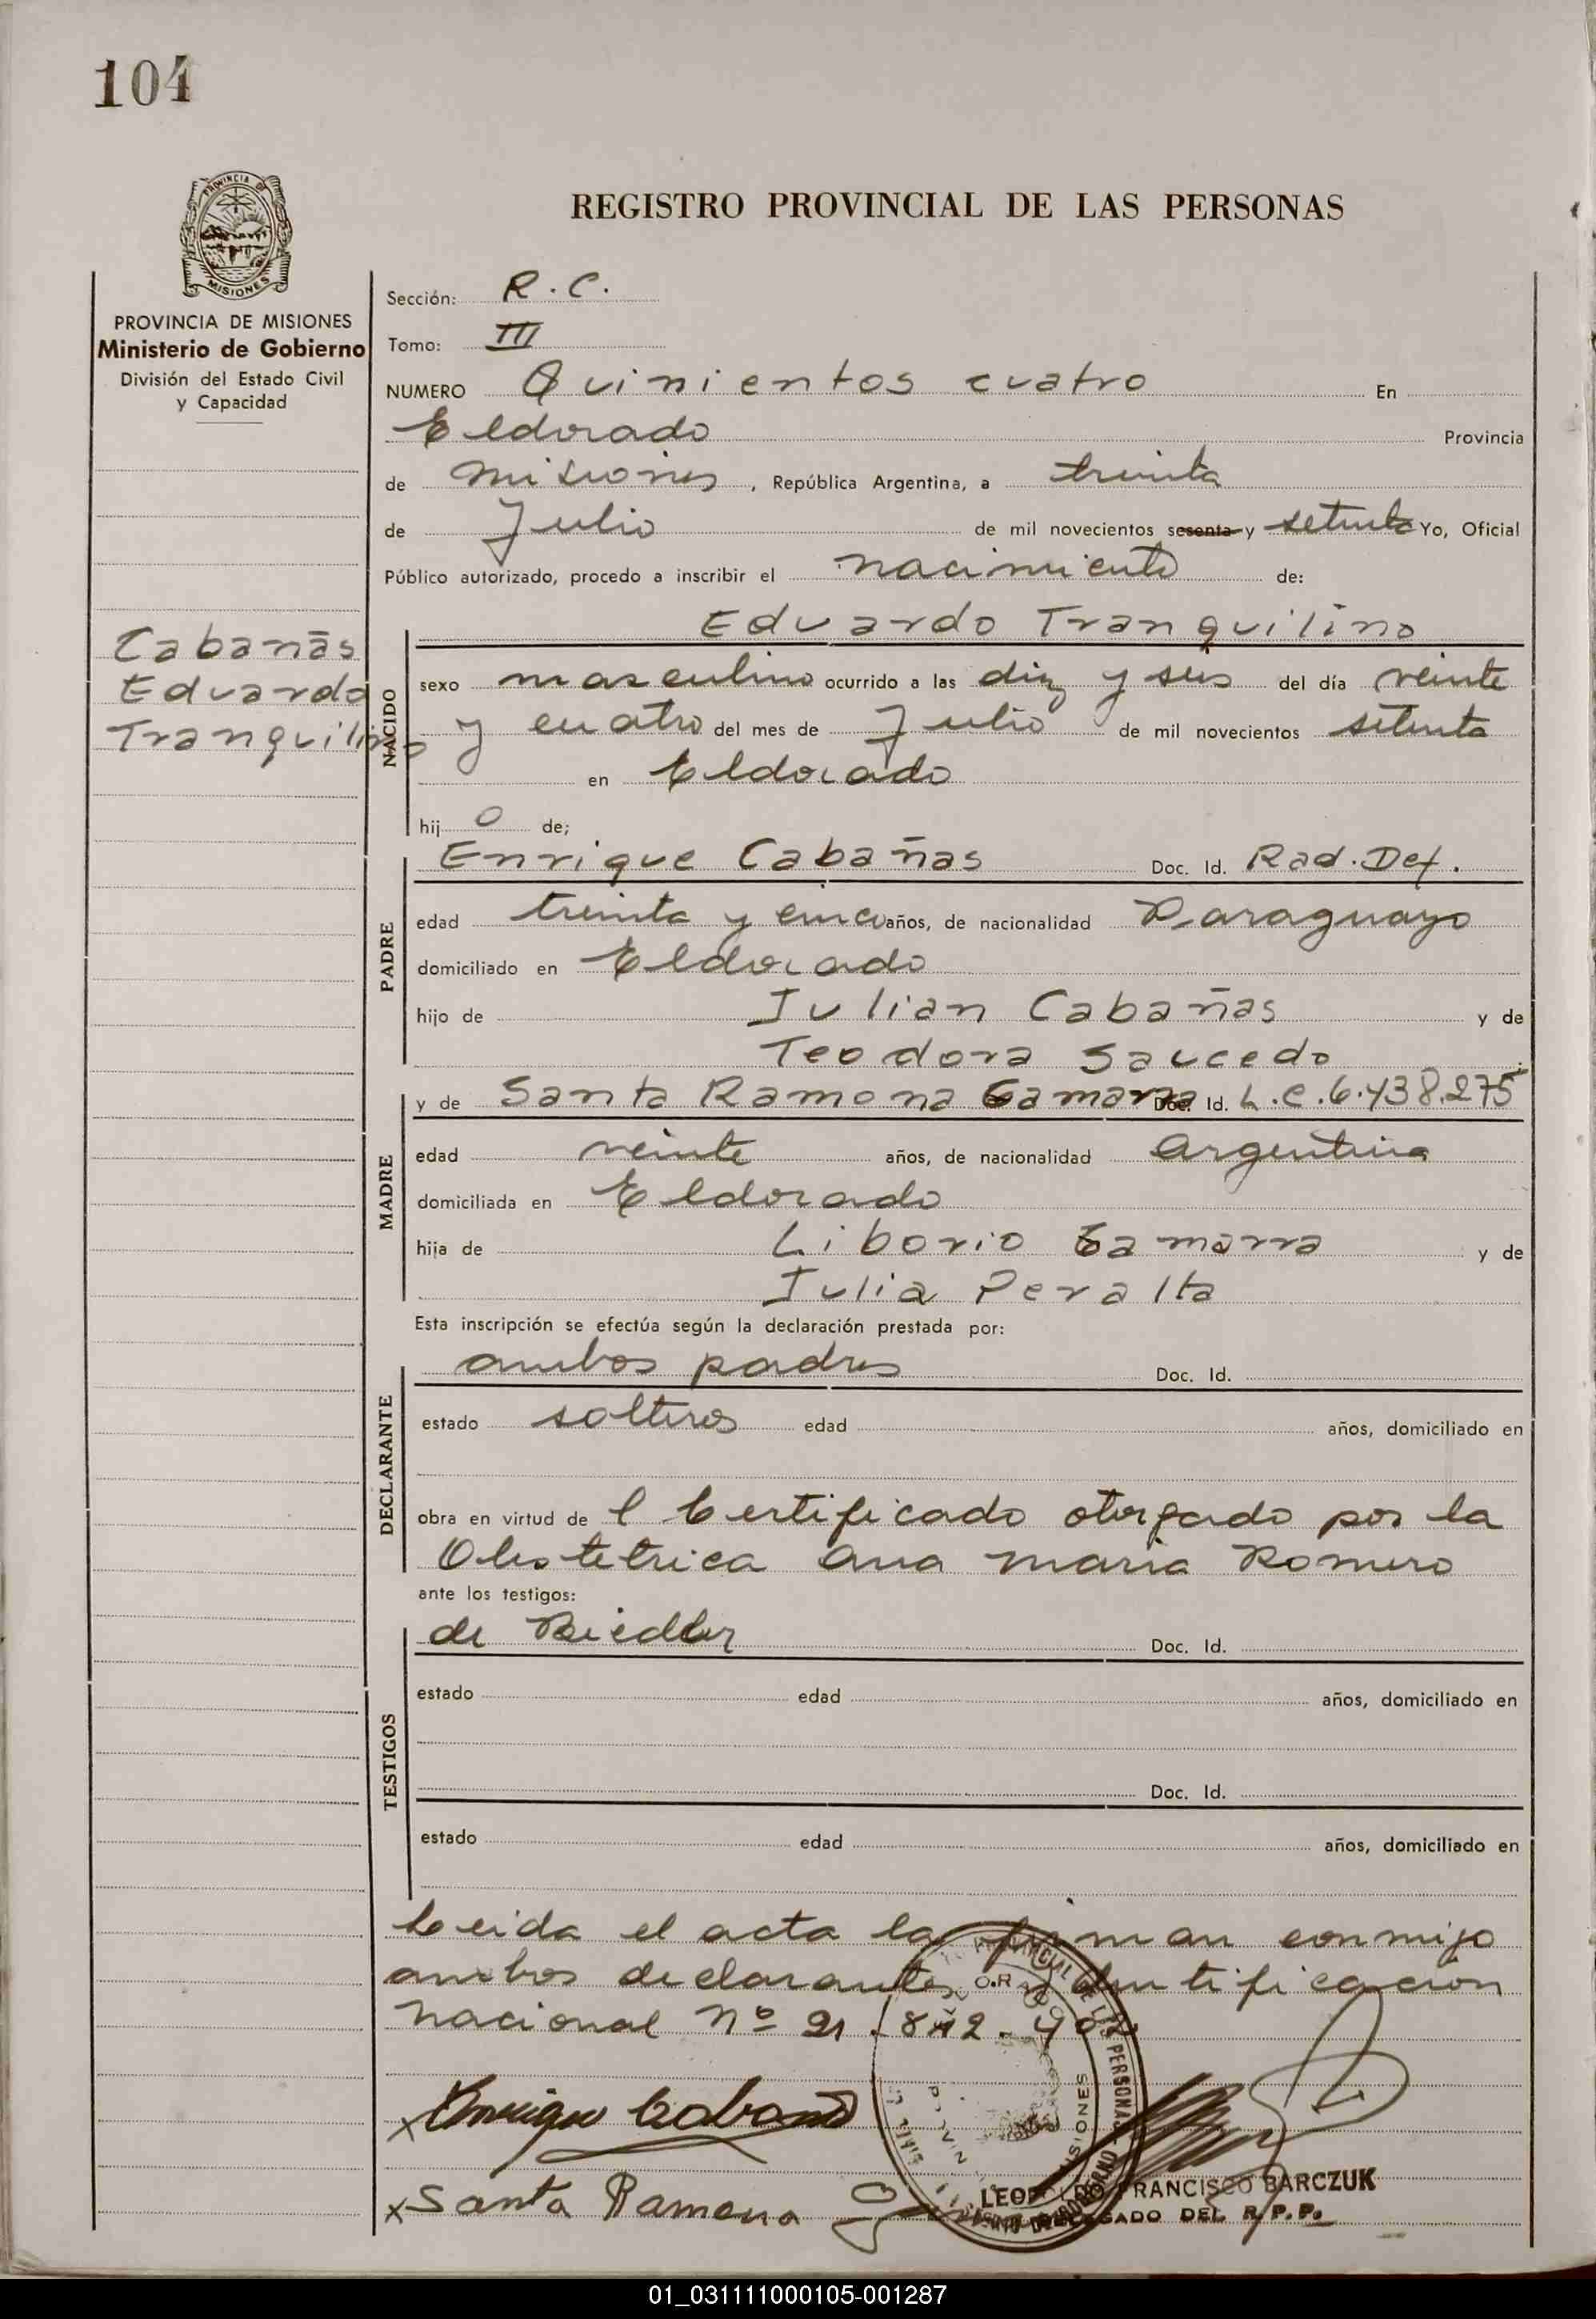 104
PROVINCIA DE
MISIONES
PROVINCIA DE MISIONES
Ministerio de Gobierno
División del Estado Civil
y Capacidad
Cabañas
Eduardo
Tranquilino
REGISTRO PROVINCIAL DE LAS PERSONAS
Sección: R. C.
Tomo: III
NUMERO Quinientos cuatro En
Eldorado Provincia
de Misiones, República Argentina, a treinta
de Julio de mil novecientos sesenta y setenta Yo, Oficial
Público autorizado, procedo a inscribir el nacimiento de:
Eduardo Tranquilino
NACIDO
sexo masculino ocurrido a las diez y seis del día veinte
y cuatro del mes de Julio de mil novecientos setenta
en Eldorado
hij o de;
Enrique Cabañas Doc. Id. Rad. Def.
PADRE
edad treinta y cinco años, de nacionalidad Paraguayo
domiciliado en Eldorado
hijo de Julian Cabañas y de
Teodora Saucedo
y de Santa Ramona Gamarra Doc. Id. L.C. 6.438.275
MADRE
edad veinte años, de nacionalidad Argentina
domiciliada en Eldorado
hija de Liborio Gamarra y de
Julia Peralta
Esta inscripción se efectúa según la declaración prestada por:
ambos padres Doc. Id.
DECLARANTE
estado solteros edad años, domiciliado en
obra en virtud de l Certificado otorgado por la
Obstetrica Ana Maria Romero
ante los testigos:
de Riedler Doc. Id.
TESTIGOS
estado edad años, domiciliado en
Doc. Id.
estado edad años, domiciliado en
Leida el acta la firman conmigo
ambos declarantes identificación
Nacional Nº 21.842.902
x Enrique Cabañas
x Santa Ramona
LEOPOLDO FRANCISCO BARCZUK
DELEGADO DEL R.P.P.
01_031111000105-001287